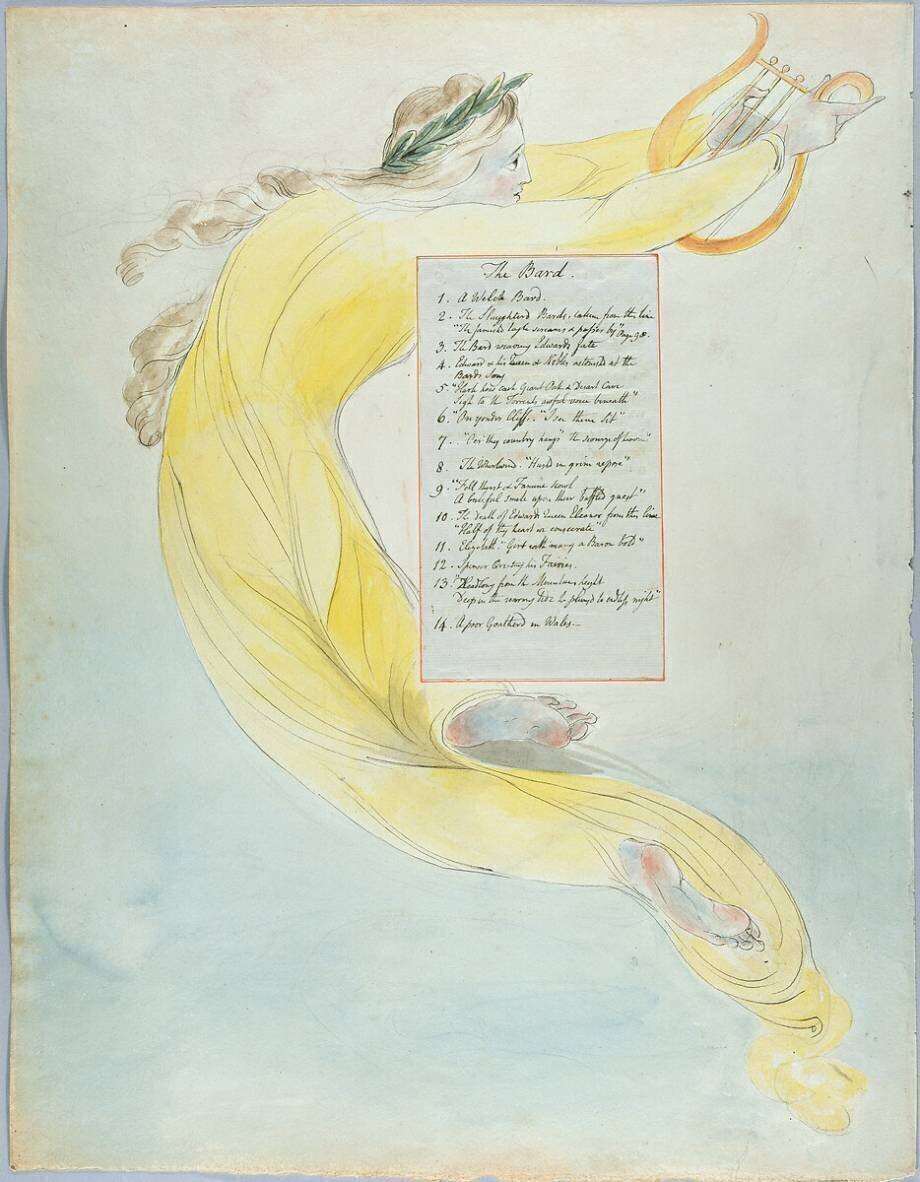 The Bard.
1. A Welch Bard.
2. The Slaughterd Bards, taken from the line
"The famishd Eagle screams & passes by" Page 98
3. The Bard weaving Edwards fate
4. Edward & his Queen & Nobles astonishd at the
Bards Song
5. "Hark how each Giant Oak & Desart Cave
Sigh to the Torrents awful voice beneath"
6. "On yonder Cliffs "I see them Sit"
7. "Oer thy country hangs The scourge of heaven"
8. The Whirlwind. "Hushd in grim repose"
9. "Fell thirst & Famine scowl
A baleful smile upon their baffled guest"
10. The death of Edwards Queen Eleanor from this line
"Half of thy heart we consecrate"
11. Elizabeth. "Girt with many a Baron bold"
12. Spenser Creating his Fairies.
13. "Headlong from the Mountains height
Deep in the roaring tide he plungd to endless night"
14. A poor Goatherd in Wales.—